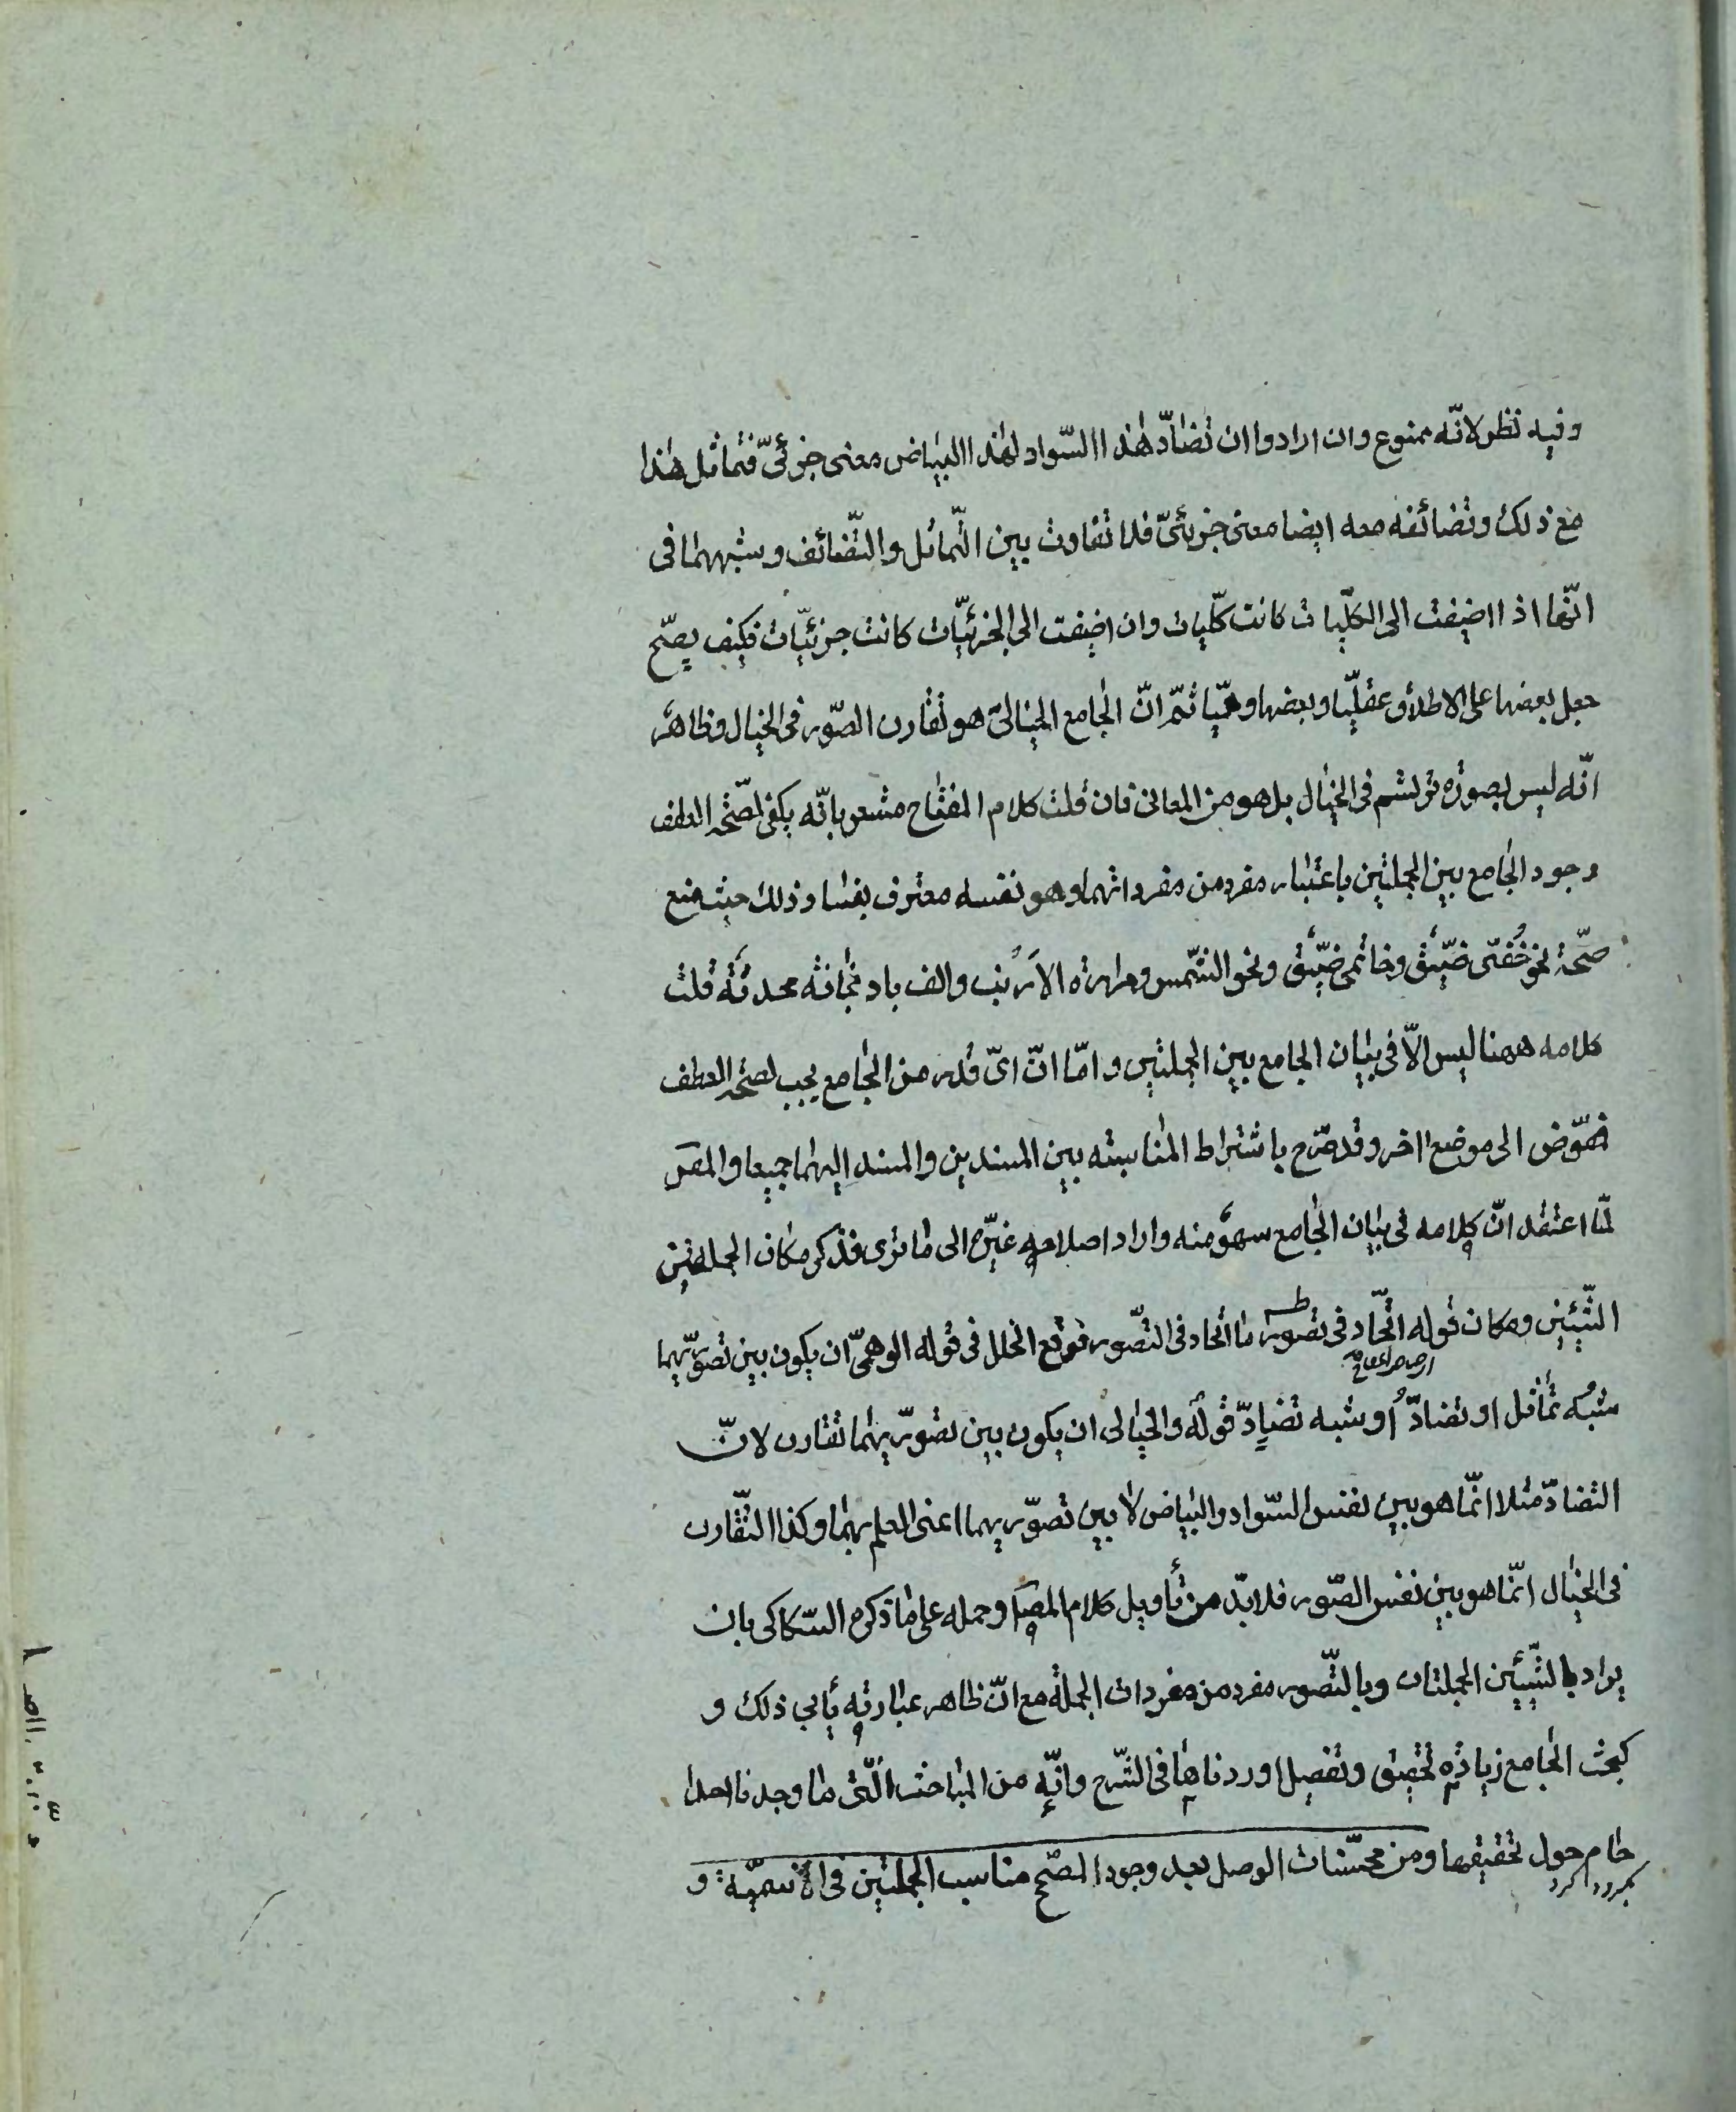 وفيه نظر لانّه ممنوع وان ارادوا ان تضادّ هٰذا السّواد لهٰذا البياض معنى جزئىّ فتماثل هٰذا
مع ذلك وتضائفه معه ايضا معنى جزئىّ فلا تفاوت بين التّماثل والتّضائف وشبههما فى
انّها اذا اضيفت الى الكلّيات كانت كلّيات وان اضيفت الى الجزئيّات كانت جزئيّات فكيف يصّح
جعل بعضها على الاطلاق عقليّا وبعضها وهميّا ثمّ انّ الجامع الخيالىّ هو تقارن الصّور فى الخيال وظاهر
انّه ليس بصورة ترتسم فى الخيال بل هو من المعانى فان قلت كلام المفتاح مشعر بانّه يكفى لصّحة العطف
وجود الجامع بين الجملتين باعتبار مفرد من مفرداتهما وهو نفسه معترف بفساد ذلك حيث منع
صحّة نحو خُفّى ضيّق وخاتمى ضيّق ونحو الشّمس ومرارة الارنب والف باذنجانة محدثة قلت
كلامه ههنا ليس الاّ فى بيان الجامع بين الجملتين وامّا انّ اىّ قدر من الجامع يجب لصحّة العطف
فمفوّض الى موضع اخر وقد صّرح باشتراط المناسبة بين المسندين والمسند اليهما جميعا والمص
لمّا اعتقد انّ كلامه فى بيان الجامع سهوٌ منه واراد اصلاحه غيّره الى ما ترى فذكر مكان الجملتين
الشّيئين ومكان قوله اتّحاد فى تصور ما اتّحاد فى التّصور فوقع الخلل فى قوله الوهمىّ ان يكون بين تصوّريهما
شبه تماثل او تضادّ أو شبه تضادّ قوله والخيالى ان يكون بين تصوّريهما تقارن لانّ
التضادّ مثلا انّما هو بين نفس السّواد والبياض لا بين تصوّريهما اعنى العلم بهما وكذا التّقارن
فى الخيال انّما هو بين نفس الصّور فلا بدّ من تأويل كلام المص وحمله على ما ذكره السّكاكى بان
يراد بالشّيئين الجملتان وبالتّصور مفرد من مفردات الجملة مع انّ ظاهر عبارته يأبى ذلك و
لبحث الجامع زيادة تحقيق وتفصيل اوردناها فى الشّرح وانّه من المباحث الّتى ما وجدنا احدا
حام حول تحقيقها ومن محسّنات الوصل بعد وجود المصّحح تناسب الجملتين فى الاسميّة و